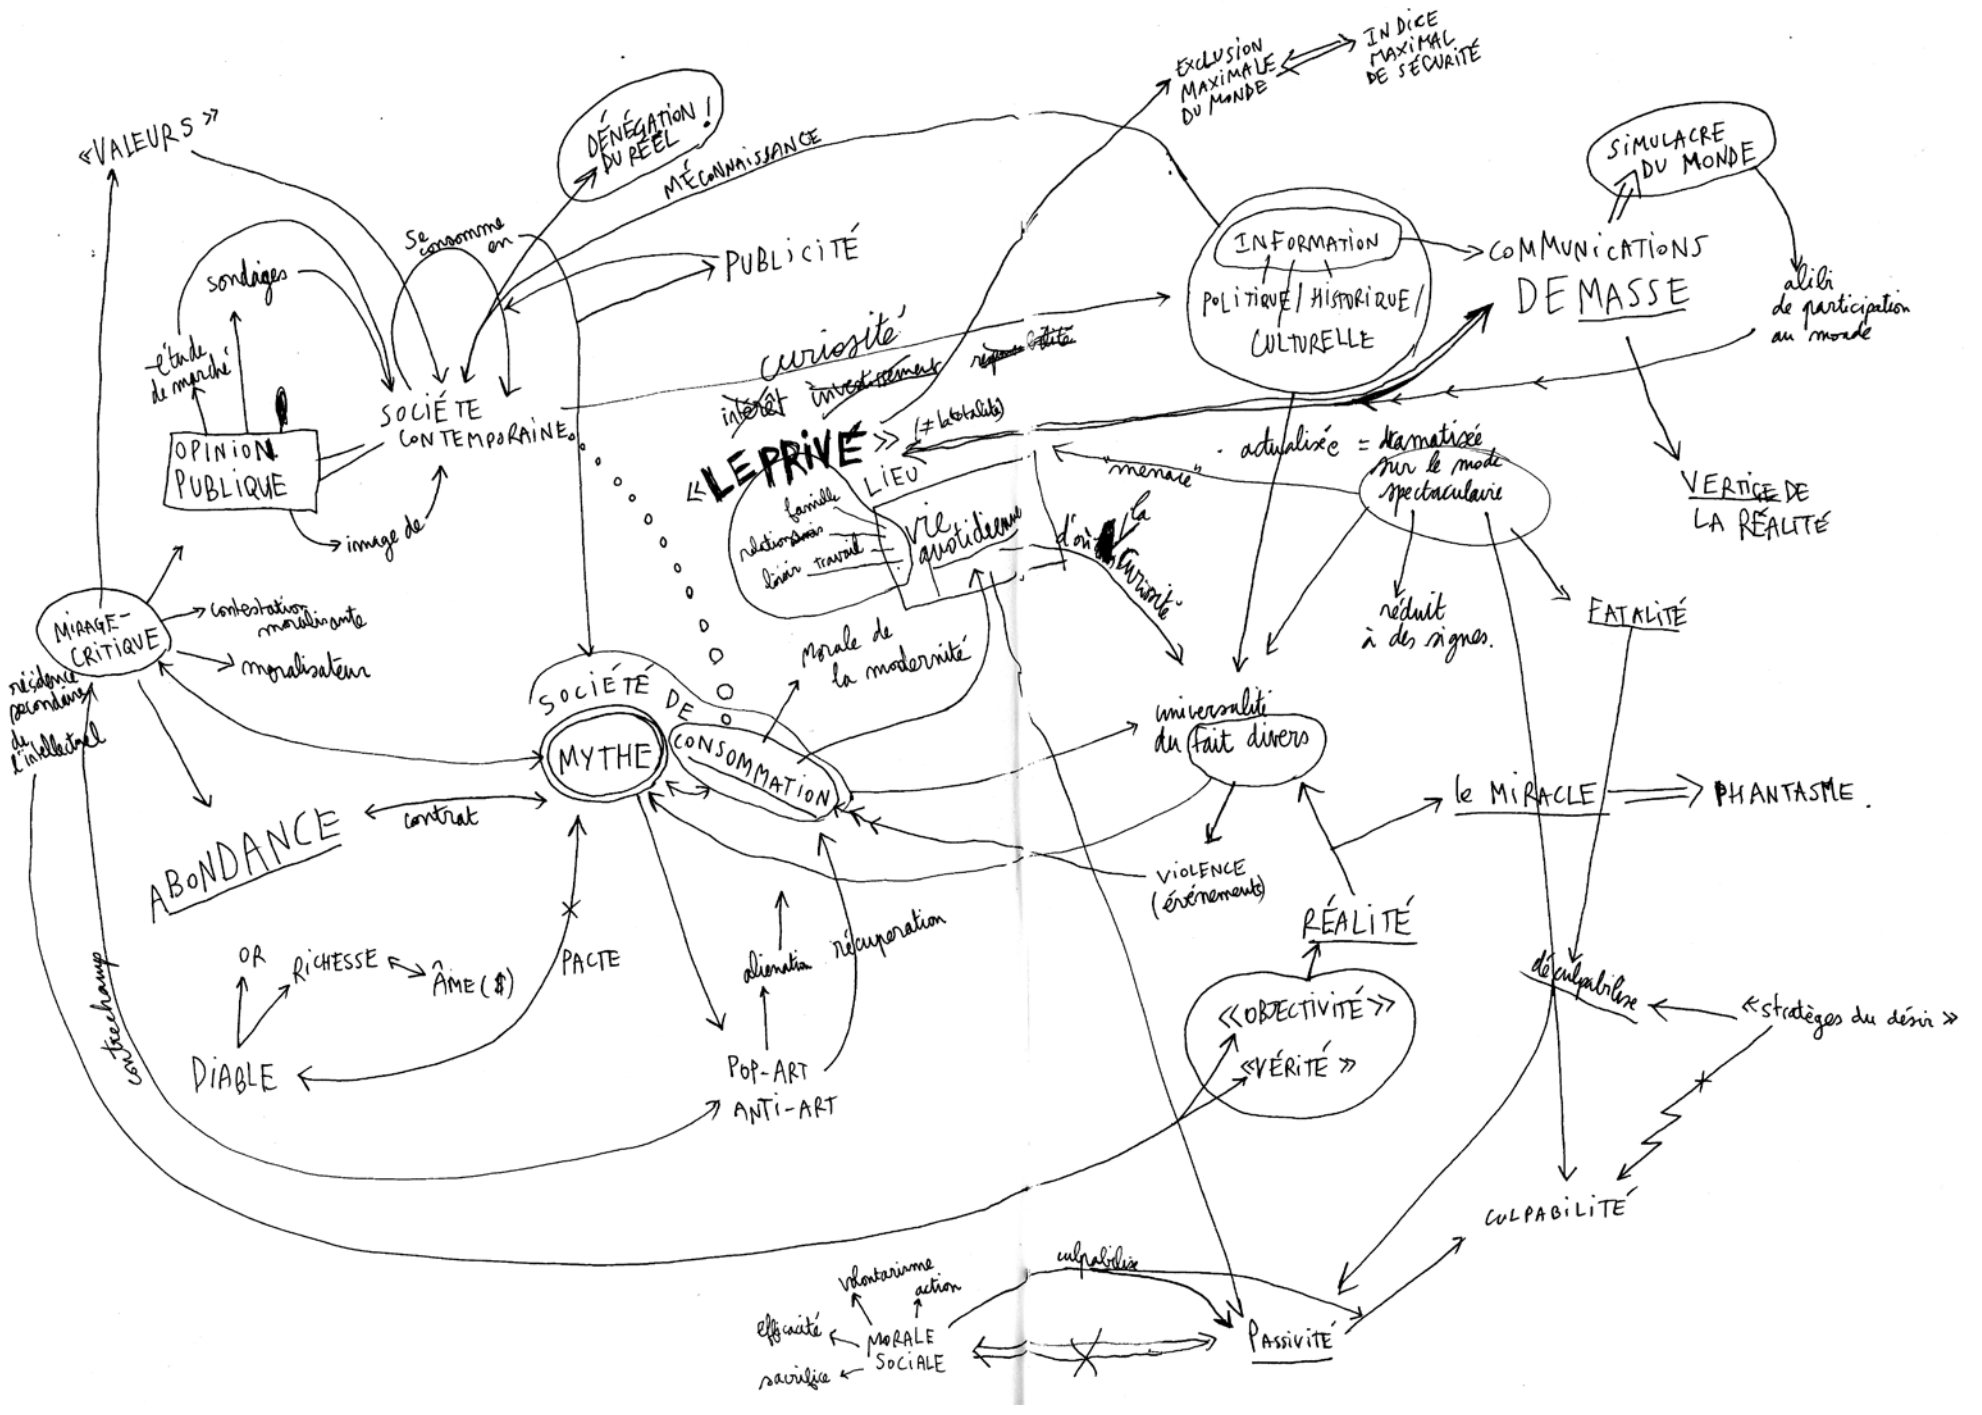 «VALEURS»
DÉNÉGATION !
DU RÉEL
MÉCONNAISSANCE
EXCLUSION
MAXIMALE
DU MONDE
INDICE
MAXIMAL
DE SÉCURITÉ
SIMULACRE
DU MONDE
se
consomme
en
PUBLICITÉ
sondages
étude
de marché
INFORMATION
POLITIQUE / HISTORIQUE /
CULTURELLE
COMMUNICATIONS
DE MASSE
alibi
de participation
au monde
curiosité
intérêt investissement
SOCIÉTÉ
CONTEMPORAINE
OPINION
PUBLIQUE
image de
«LE PRIVÉ» (≠ la totalité)
LIEU
famille
relations
loisir travail
vie
quotidienne
"menace"
d'où la
curiosité
actualisée = dramatisée
sur le mode
spectaculaire
VERTIGE DE
LA RÉALITÉ
réduit
à des signes.
FATALITÉ
MIRAGE-
CRITIQUE
contestation
moralisante
moralisateur
résidence
secondaire
de
l'intellectuel
morale de
la modernité
SOCIÉTÉ DE
CONSOMMATION
MYTHE
universalité
du fait divers
le MIRACLE
PHANTASME.
contrat
ABONDANCE
VIOLENCE
(événements)
RÉALITÉ
OR
RICHESSE
ÂME ($)
PACTE
aliénation
récuperation
déculpabilise
«stratèges du désir»
«OBJECTIVITÉ»
«VÉRITÉ»
contrechamp
DIABLE
POP-ART
ANTI-ART
CULPABILITÉ
volontarisme
action
culpabilise
efficacité
MORALE
SOCIALE
sacrifice
PASSIVITÉ